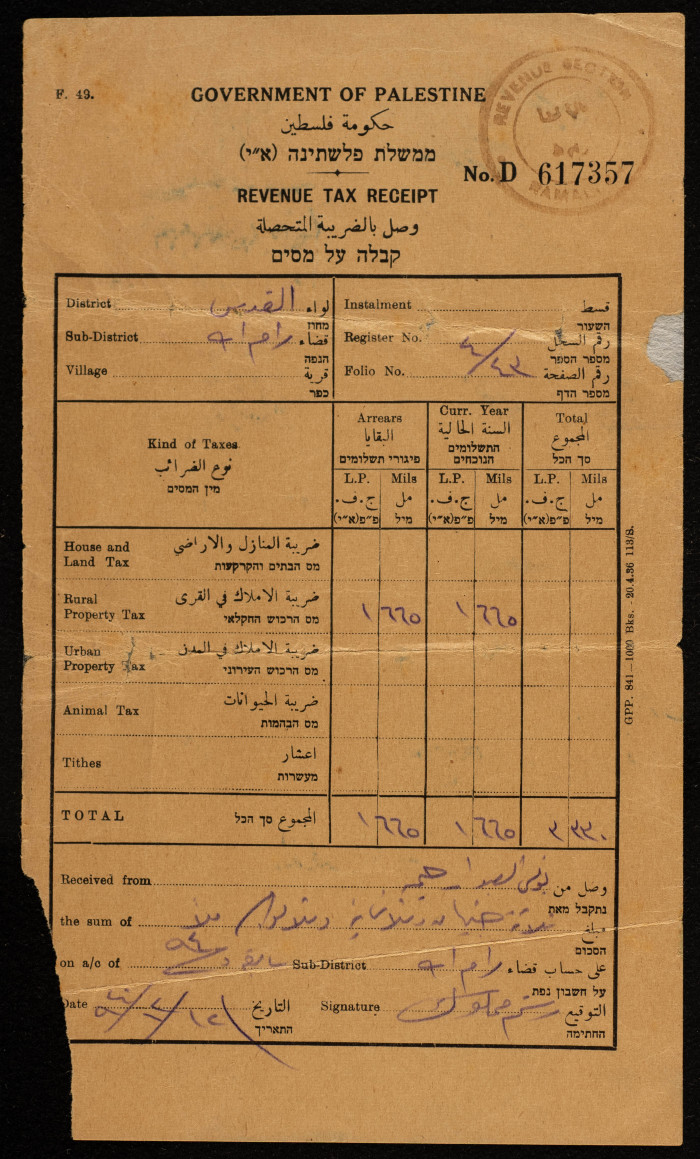 F. 49.
GOVERNMENT OF PALESTINE
حكومة فلسطين
ממשלת פלשתינה (א״י)
REVENUE SECTION
No. D 617357
REVENUE TAX RECEIPT
وصل بالضريبة المتحصلة
קבלה על מסים
District القدس لواء
מחוז
Sub-District رام الله قضاء
הנפה
Village قرية
כפר
Instalment قسط
השעור
Register No. رقم السجل
מספר הספר
Folio No. رقم الصفحة
מספר הדף
Kind of Taxes
نوع الضرائب
מין המסים
Arrears
البقايا
פיגורי תשלומים
Curr. Year
السنة الحالية
התשלומים
הנוכחים
Total
المجموع
סך הכל
L.P. Mils L.P. Mils L.P. Mils
ج.ف. مل ج.ف. مل ج.ف. مل
פ״פ(א״י) מיל פ״פ(א״י) מיל פ״פ(א״י) מיל
House and ضريبة المنازل والاراضي
Land Tax מס הבתים והקרקעות
Rural ضريبة الاملاك في القرى
Property Tax מס הרכוש החקלאי ١ ٦٦٥ ١ ٦٦٥
Urban ضريبة الاملاك في المدن
Property Tax מס הרכוש העירוני
Animal Tax ضريبة الحيوانات
מס הבהמות
Tithes اعشار
מעשרות
TOTAL المجموع סך הכל ١ ٦٦٥ ١ ٦٦٥ ٣ ٣٣٠
Received from وصل من
נתקבל מאת
the sum of مبلغ
הסכום
on a/c of Sub-District رام الله على حساب قضاء
על חשבון נפת
Date التاريخ Signature التوقيع
התאריך החתימה
GPP. 841—1000 Bks. - 20.4.36 113/S.